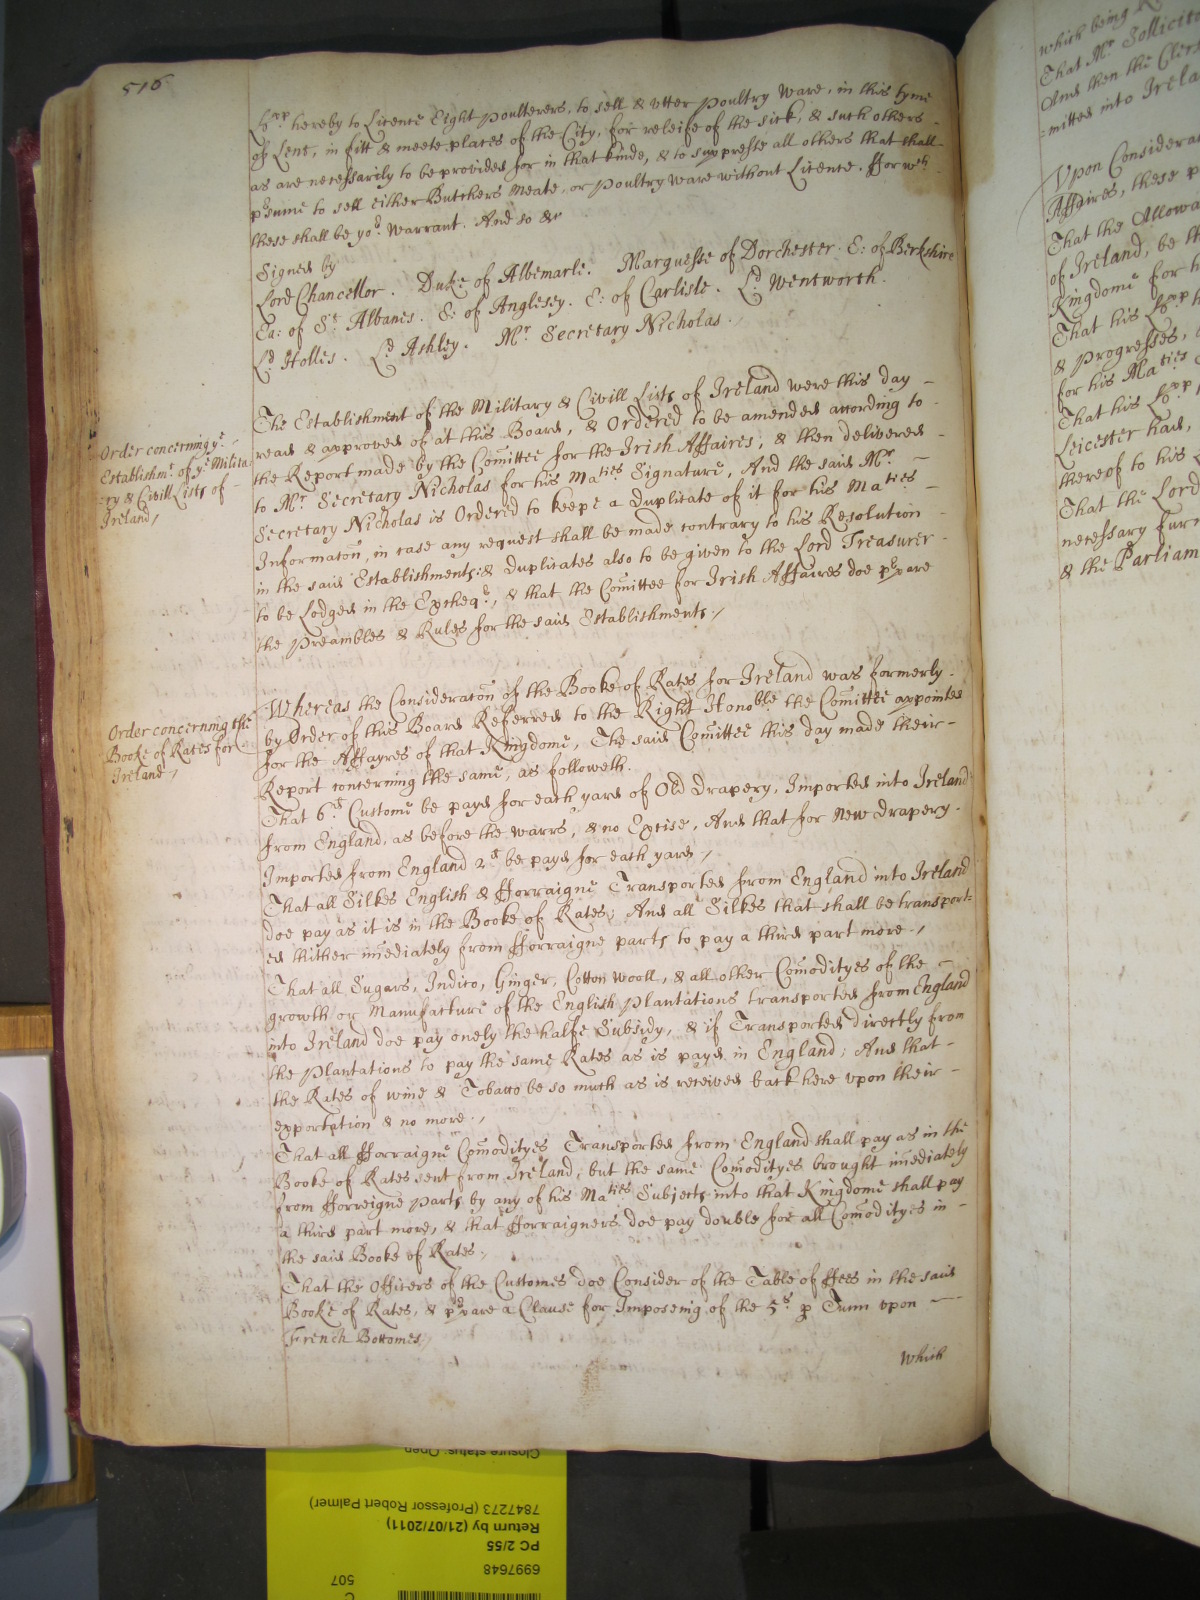 516
Lopp hereby to Licence Eight Poulterers, to sell & vtter Poultry Ware, in this tyme
of Lent, in fitt & meete places of the City, for releife of the sick, & such others -
as are necessarily to be provided for in that kinde, & to suppresse all others that shall
p'sume to sell either Butchers Meate, or Poultry Ware without Licence. ffor wch
these shall be yor Warrant. And so &c
Signed by
Lord Chancellor. Duke of Albemarle. Marquesse of Dorchester. E: of Berkshire
Ea: of St Albanes. E: of Anglesey. E: of Carlisle. Ld Wentworth.
Ld Holles. Ld Ashley. Mr Secretary Nicholas.
Order concerning ye
Establishmt. of ye Milita
=ry & Civill Lists of -
Ireland /
The Establishment of the Military & Civill Lists of Ireland were this day -
read & approved of at this Board, & Ordered to be amended according to -
the Report made by the Comittee for the Irish Affaires, & then delivered -
to Mr Secretary Nicholas for his Maties Signature, And the said Mr -
Secretary Nicholas is Ordered to keepe a Duplicate of it for his Maties -
Informacon, in case any request shall be made contrary to his Resolution -
in the said Establishments: & Duplicates also to be given to the Lord Treasurer -
to be Lodged in the Excheqr, & that the Comittee for Irish Affaires doe p'pare
the Preambles & Rules for the said Establishments /
Order concerning the
Booke of Rates for
Ireland /
Whereas the Consideracon of the Booke of Rates for Ireland was formerly -
by Order of this Board Referred to the Right Honoble the Comittee appointed
for the Affayres of that Kingdome, The said Comittee this day made their -
Report concerning the same, as followeth.
That 6d Custome be payd for each yard of Old Drapery, Imported into Ireland
from England, as before the warrs, & no Excise, And that for New Drapery -
Imported from England 2d be payd for each yard /
That all Silkes English & fforraigne Transported from England into Ireland
doe pay as it is in the Booke of Rates; And all Silkes that shall be transport=
ed thither imediately from fforraigne parts to pay a third part more. /
That all Sugars, Indico, Ginger, Cotton wooll, & all other Comodityes of the -
growth or Manufacture of the English Plantations transported from England
into Ireland doe pay onely the halfe Subsidy, & if Transported directly from
the Plantations to pay the same Rates as is payd in England; And that -
the Rates of wine & Tobacco be so much as is received back here vpon their -
exportation & no more. /
That all fforraigne Comodityes Transported from England shall pay as in the
Booke of Rates sent from Ireland, but the same Comodityes brought imediately
from fforreigne Parts by any of his Maties Subjects into that Kingdome shall pay
a third part more, & that fforraigners doe pay double for all Comodityes in -
the said Booke of Rates /
That the Officers of the Customes doe Consider of the Table of ffees in the said
Booke of Rates, & p'pare a Clause for Imposeing of the 5s p Tunn vpon -
French Bottomes /
Which
which being
That Mr Sollicito
And then the Cler
=mitted into Irela
Vpon Considerac
Affaires, these p
That the Allowa
of Ireland, be th
Kingdome for h
That his Lopp h
& Progresses,
for his Maties
That his Lopp
Leicester had,
thereof to his L
That the Lord
necessary furn
& the Parliam
Closure status: Open
7847273 (Professor Robert Palmer)
Return by (21/07/2011)
PC 2/55
6997648
507
C